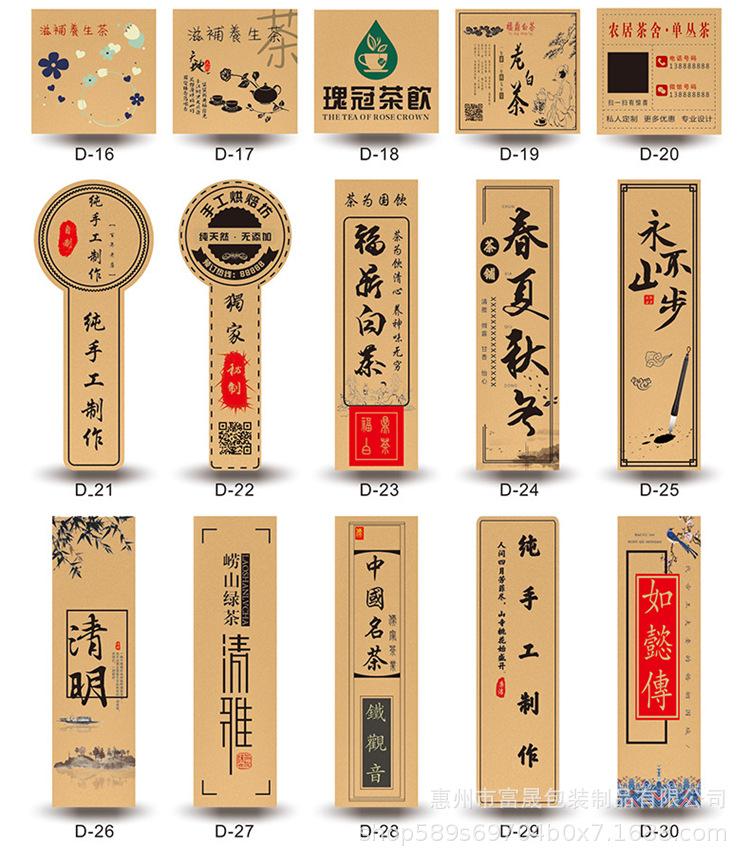 滋補養生茶
滋補養生茶
茶
天地
瑰冠茶飲
THE TEA OF ROSE CROWN
福鼎白茶
老白茶
农居茶舍·单丛茶
电话号码
138888888
微信号码
138888888
扫一扫有惊喜
私人定制 更多优惠 专业设计
D-16
D-17
D-18
D-19
D-20
纯手工制作
自制
纯手工制作
手工烘焙坊
纯天然·无添加
独家
秘制
茶为国饮
福鼎白茶
茶为饮清心
养神味无穷
春夏秋冬
茶铺
CHUN
XIA
QIU
DONG
清雅 微露 甘香 怡心
永不步山
D-21
D-22
D-23
D-24
D-25
清明
崂山绿茶
LAOSHANLVCHA
清雅
中國名茶
鐵觀音
纯手工制作
人间四月芳菲尽，山寺桃花始盛开
如懿傳
D-26
D-27
D-28
D-29
D-30
惠州市富晟包装制品有限公司
shop589s69734b0x7.1688.com